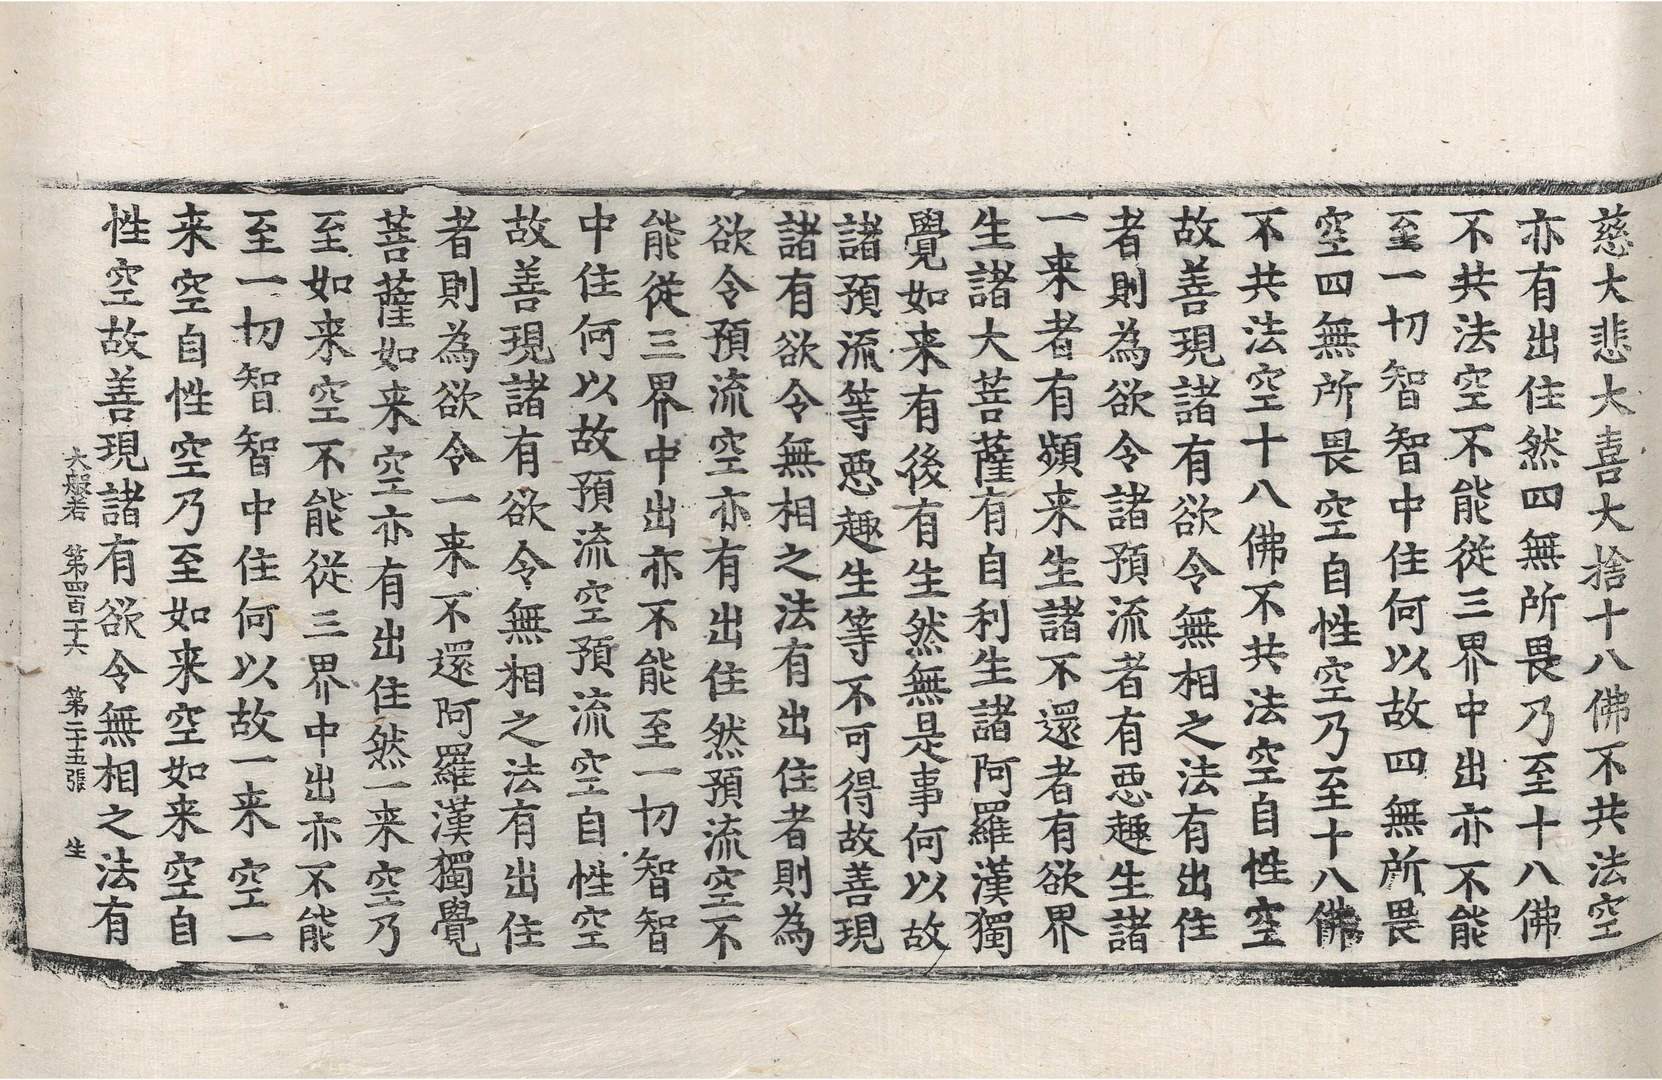 慈大悲大喜大捨十八佛不共法空
亦有出住然四無所畏乃至十八佛
不共法空不能從三界中出亦不能
至一切智智中住何以故四無所畏
空四無所畏空自性空乃至十八佛
不共法空十八佛不共法空自性空
故善現諸有欲令無相之法有出住
者則為欲令諸預流者有惡趣生諸
一来者有頻来生諸不還者有欲界
生諸大菩薩有自利生諸阿羅漢獨
覺如来有後有生然無是事何以故
諸預流等惡趣生等不可得故善現
諸有欲令無相之法有出住者則為
欲令預流空亦有出住然預流空不
能從三界中出亦不能至一切智智
中住何以故預流空預流空自性空
故善現諸有欲令無相之法有出住
者則為欲令一来不還阿羅漢獨覺
菩薩如来空亦有出住然一来空乃
至如来空不能從三界中出亦不能
至一切智智中住何以故一来空一
来空自性空乃至如来空如来空自
性空故善現諸有欲令無相之法有
大般若　第四百十六　第二十五張　生